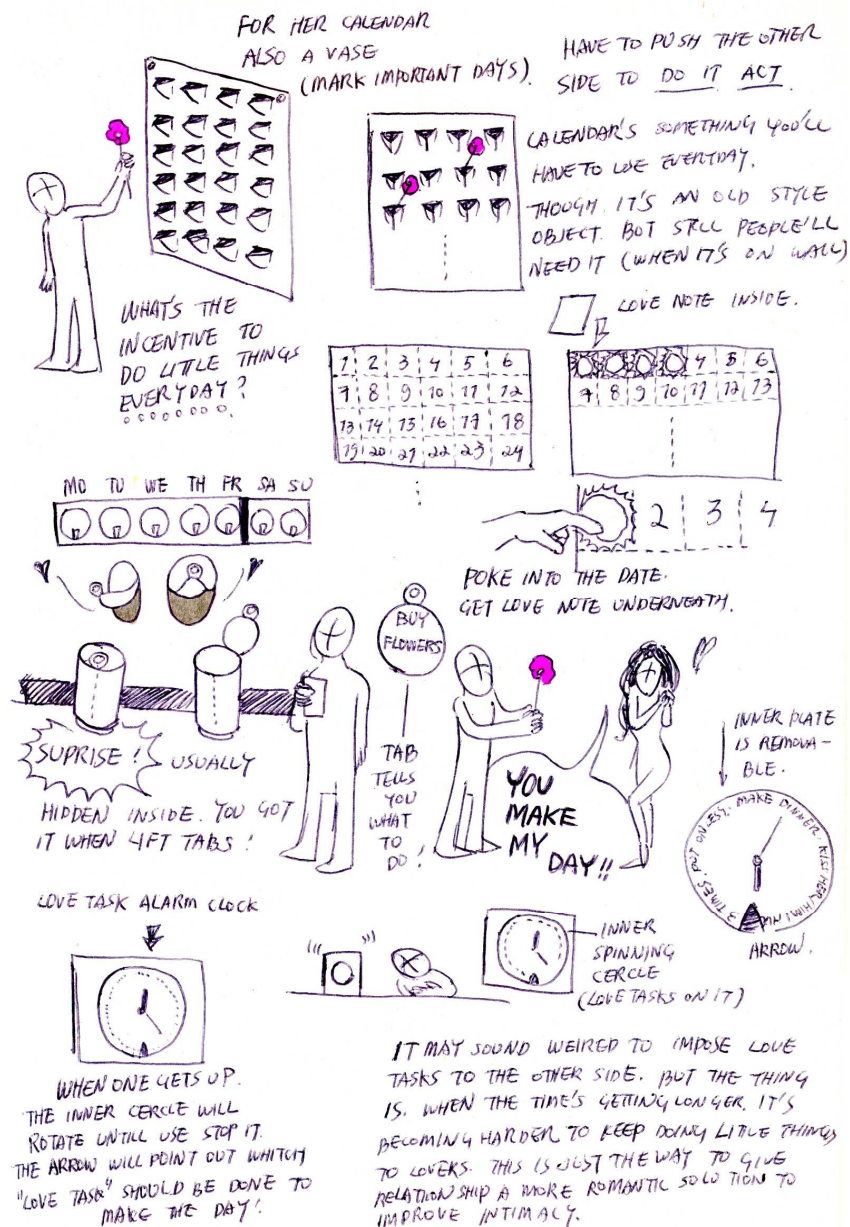 FOR HER CALENDAR
ALSO A VASE
(MARK IMPORTANT DAYS).
HAVE TO PUSH THE OTHER
SIDE TO DO IT ACT
CALENDAR'S SOMETHING YOU'LL
HAVE TO USE EVERYDAY.
THOUGH, IT'S AN OLD STYLE
OBJECT. BUT STILL PEOPLE'LL
NEED IT (WHEN IT'S ON WALL)
LOVE NOTE INSIDE.
WHAT'S THE
INCENTIVE TO
DO LITTLE THINGS
EVERYDAY?
1 2 3 4 5 6
7 8 9 10 11 12
13 14 15 16 17 18
19 20 21 22 23 24
4 5 6
7 8 9 10 11 12 13
MO TU WE TH FR SA SU
2 3 4
POKE INTO THE DATE.
GET LOVE NOTE UNDERNEATH.
BUY
FLOWERS
SUPRISE!
USUALLY
HIDDEN INSIDE. YOU GOT
IT WHEN LIFT TABS!
TAB
TELLS
YOU
WHAT
TO
DO!
YOU
MAKE
MY
DAY!!
INNER PLATE
IS REMOVA-
BLE.
3 TIMES, PUT ON MAKE DINNER, KISS HER/HIM
ARROW.
LOVE TASK ALARM CLOCK
INNER
SPINNING
CERCLE
(LOVE TASKS ON IT)
WHEN ONE GETS UP.
THE INNER CERCLE WILL
ROTATE UNTILL USE STOP IT.
THE ARROW WILL POINT OUT WHITCH
"LOVE TASK" SHOULD BE DONE TO
MAKE THE DAY!
IT MAY SOUND WEIRED TO IMPOSE LOVE
TASKS TO THE OTHER SIDE. BUT THE THING
IS. WHEN THE TIME'S GETTING LONGER, IT'S
BECOMING HARDER TO KEEP DOING LITTLE THINGS
TO LOVERS. THIS IS JUST THE WAY TO GIVE
RELATIONSHIP A MORE ROMANTIC SOLUTION TO
IMPROVE INTIMACY.